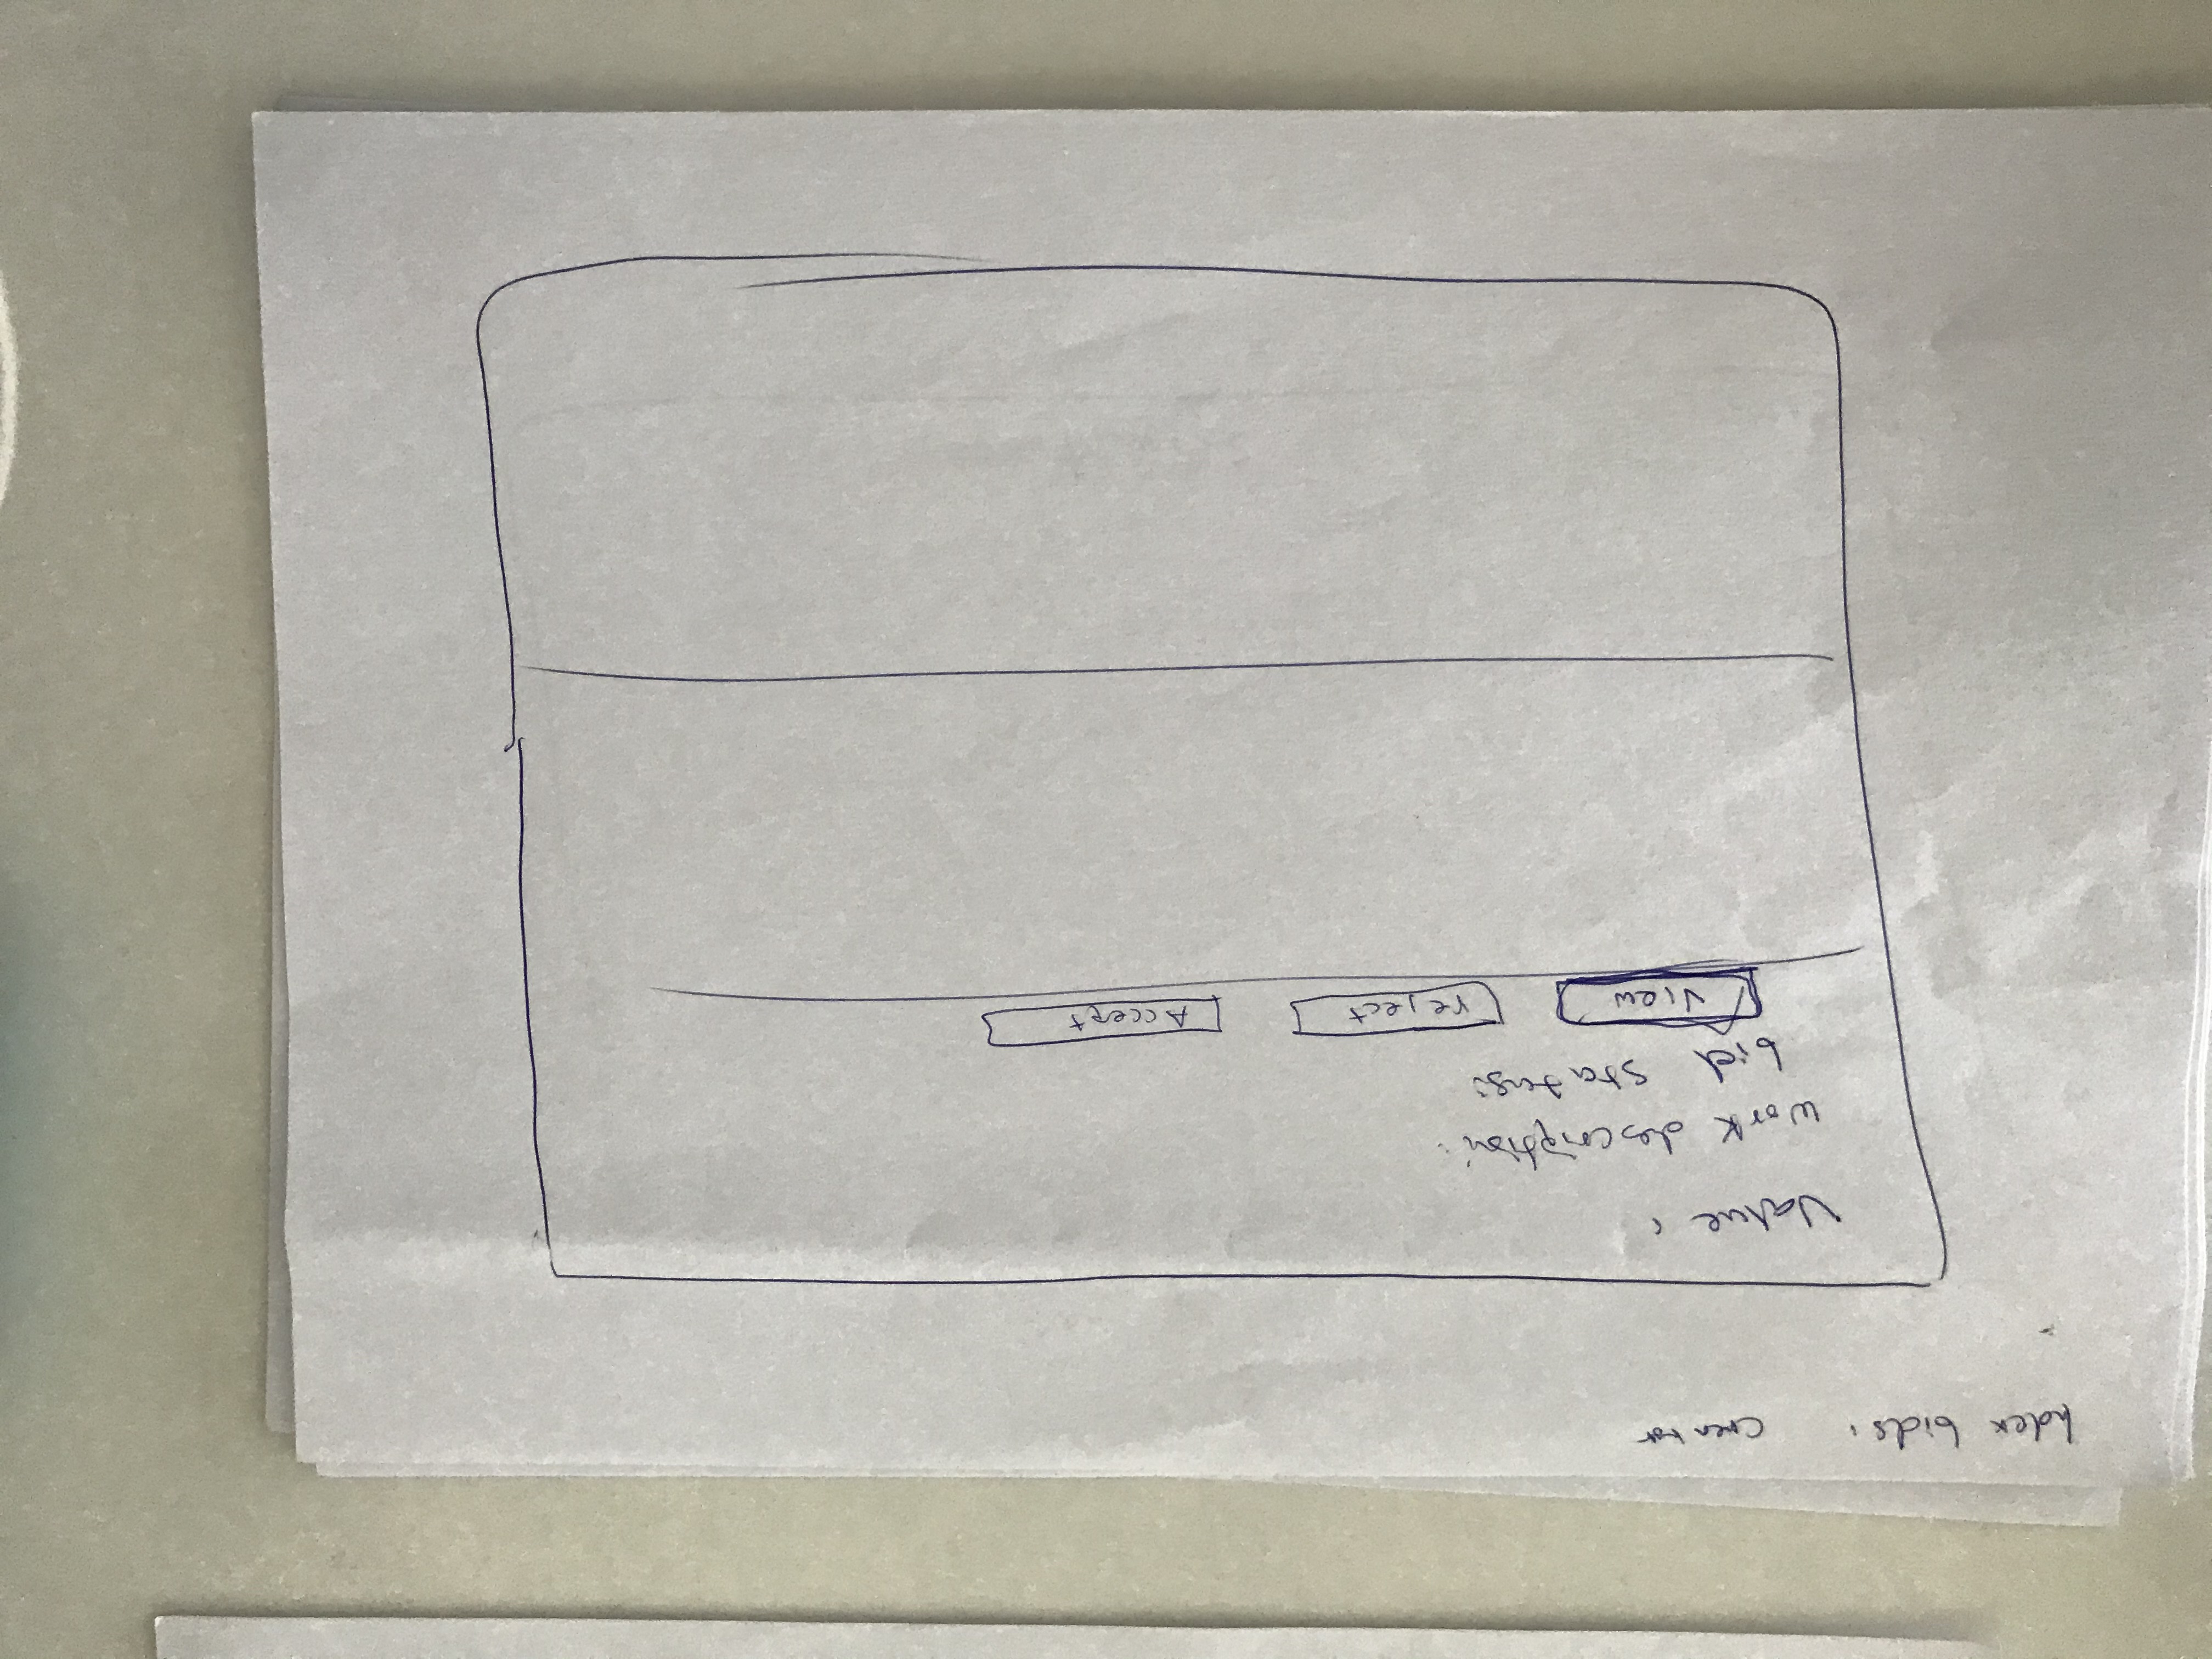 Index bids: creator
Value:
work description:
bid status:
View reject Accept